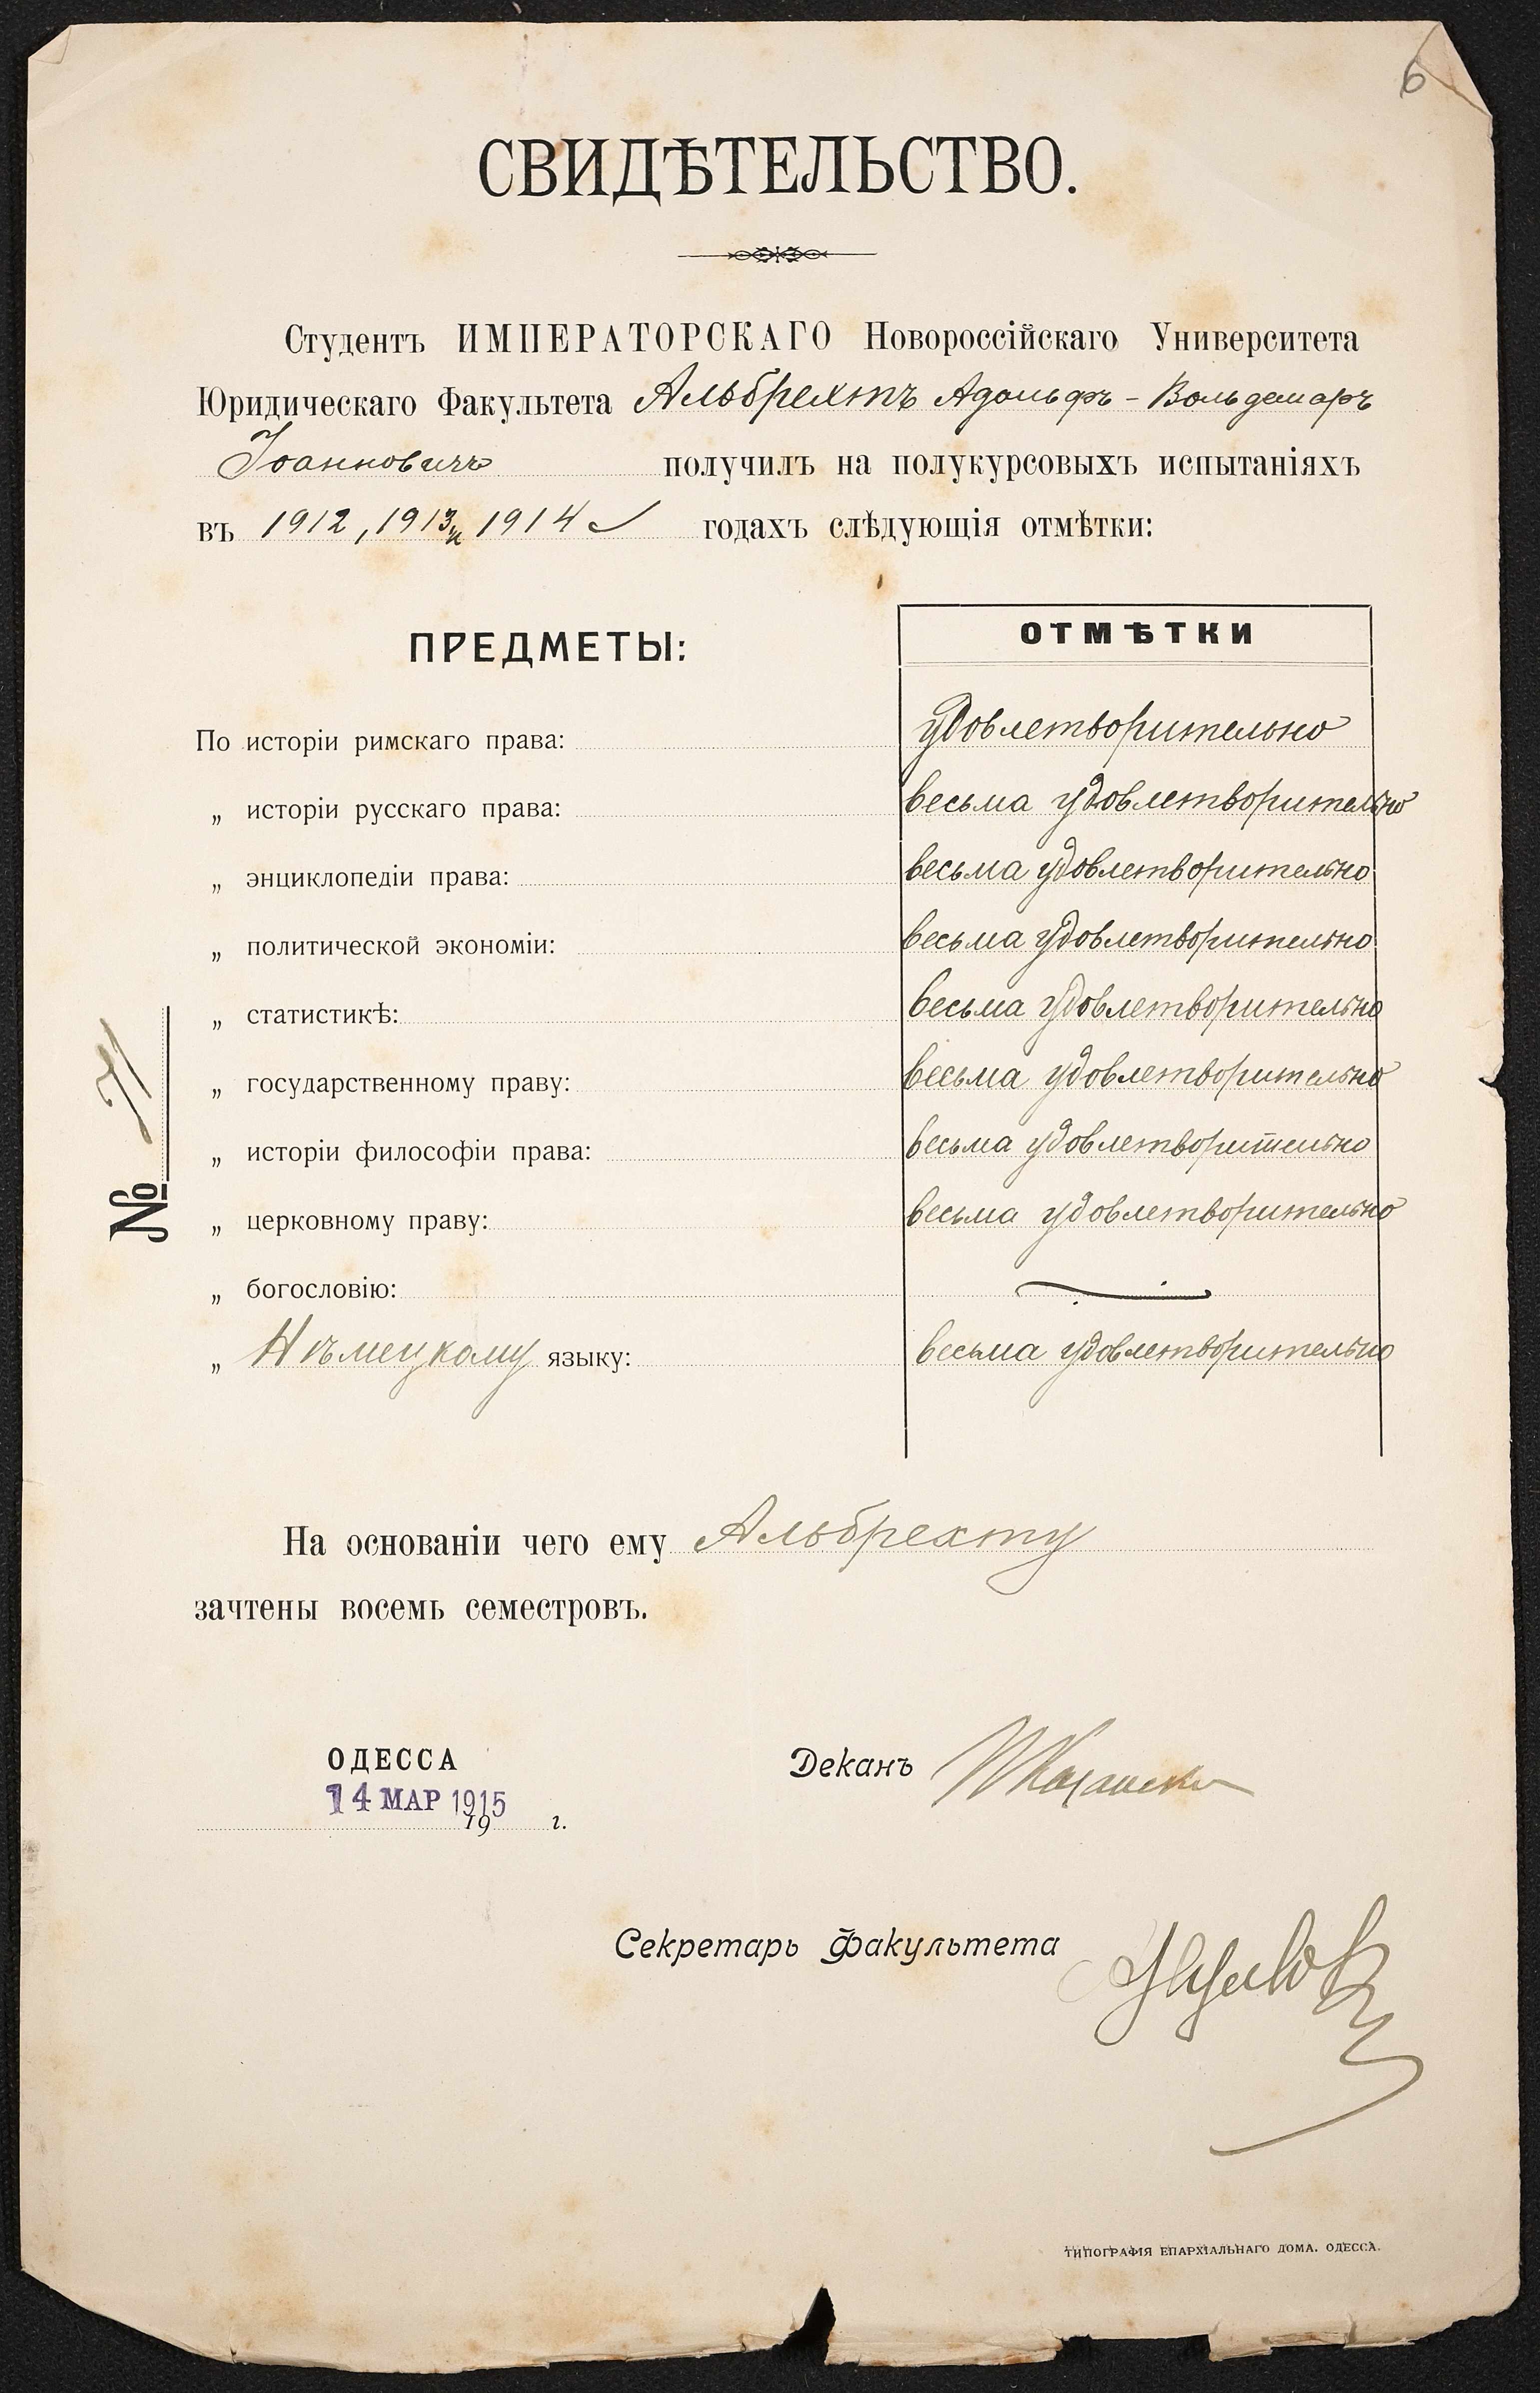 6
СВИДѢТЕЛЬСТВО.
Студентъ ИМПЕРАТОРСКАГО Новороссійскаго Университета
Юридическаго Факультета Альбрехтъ Адольфъ-Вольдемаръ
Іоанновичъ получилъ на полукурсовыхъ испытаніяхъ
въ 1912, 1913 и 1914 годахъ слѣдующія отмѣтки:
ПРЕДМЕТЫ: ОТМѢТКИ
По исторіи римскаго права: удовлетворительно
„ исторіи русскаго права: весьма удовлетворительно
„ энциклопедіи права: весьма удовлетворительно
„ политической экономіи: весьма удовлетворительно
„ статистикѣ: весьма удовлетворительно
„ государственному праву: весьма удовлетворительно
„ исторіи философіи права: весьма удовлетворительно
„ церковному праву: весьма удовлетворительно
„ богословію:
„ Нѣмецкому языку: весьма удовлетворительно
№ 71
На основаніи чего ему Альбрехту
зачтены восемь семестровъ.
ОДЕССА
14 МАР 1915
19 г.
Деканъ П Казанскі
Секретарь Факультета
ТИПОГРАФІЯ ЕПАРХІАЛЬНАГО ДОМА. ОДЕССА.